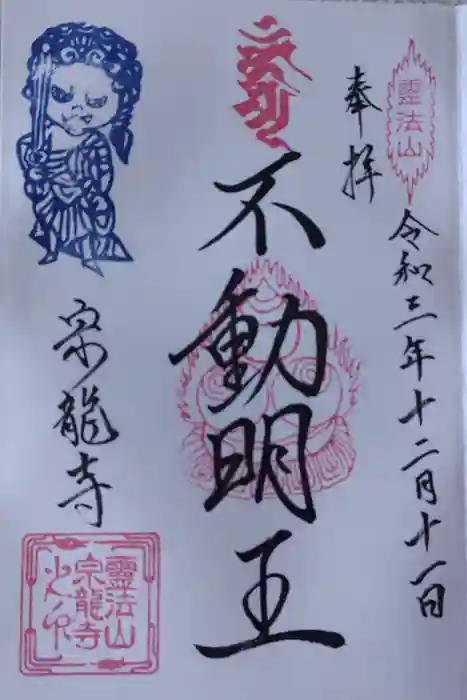 靈法山
奉拝
令和三年十二月十一日
不動明王
宗龍寺
靈法山
宗龍寺
之印